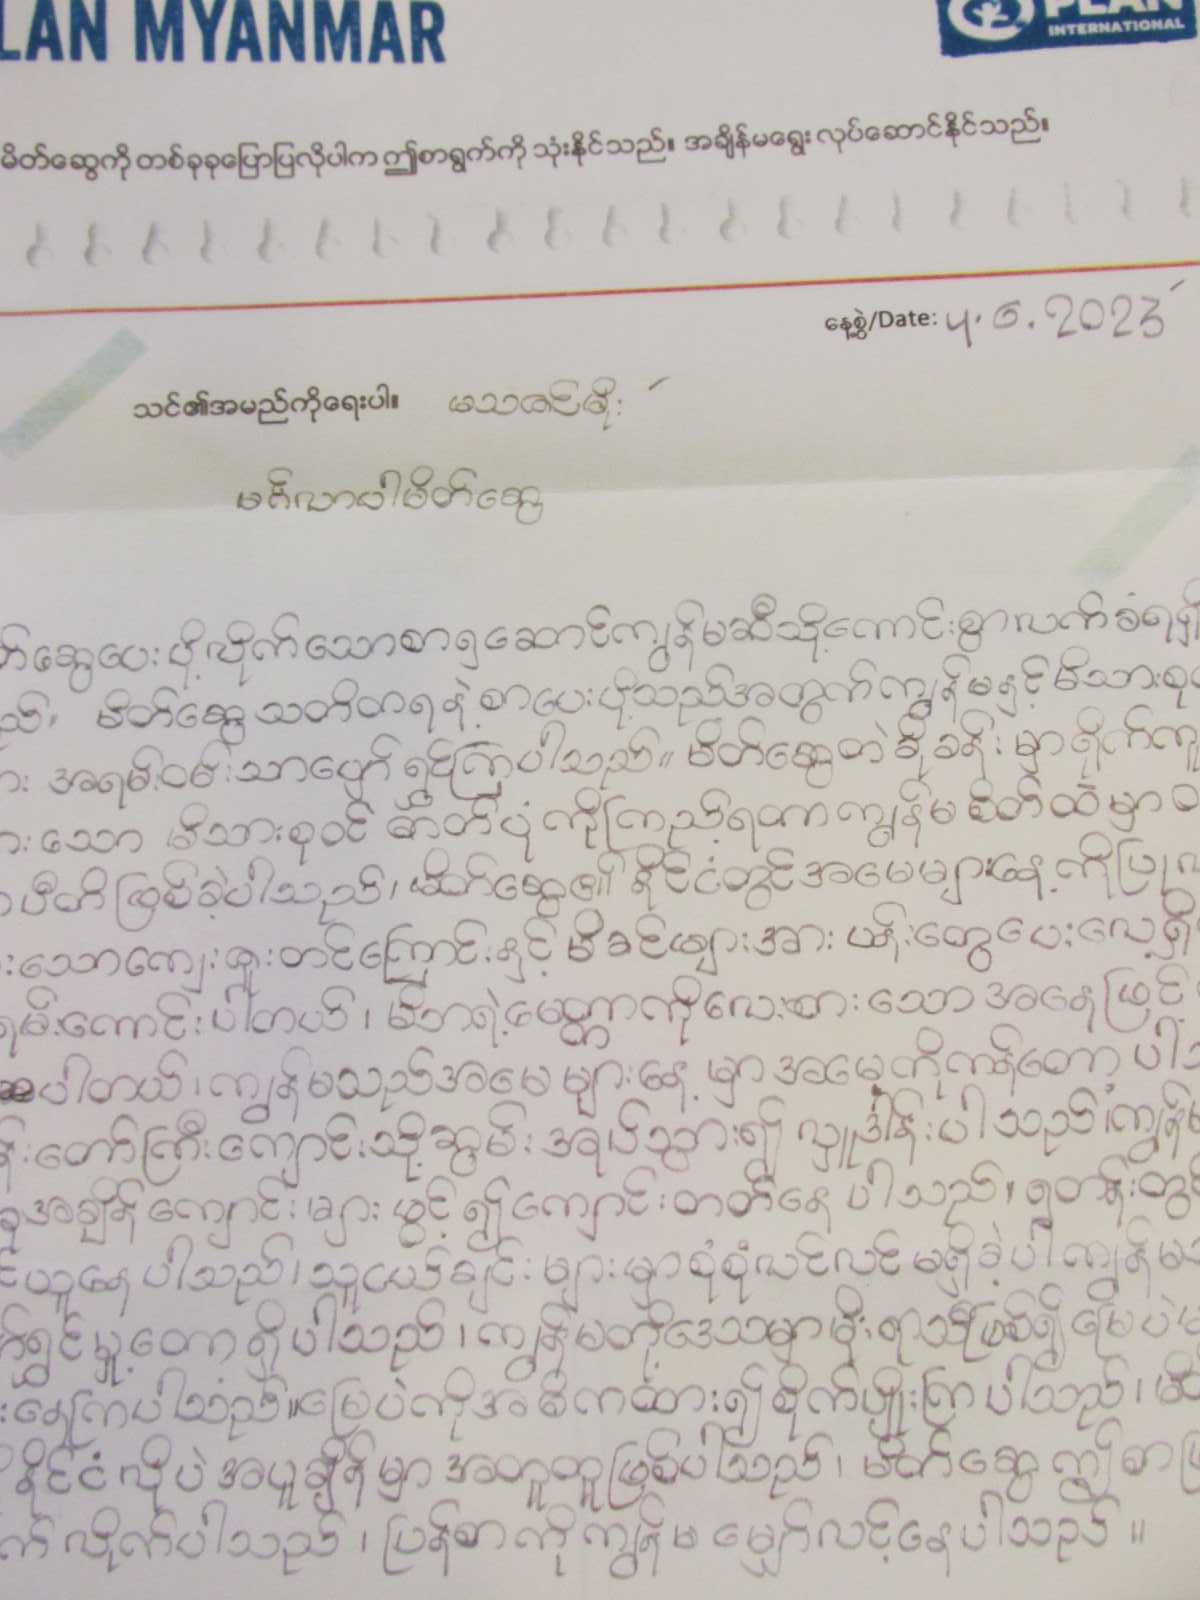 LAN MYANMAR
PLAN
INTERNATIONAL
မိတ်ဆွေကို တစ်ခုခုပြောပြလိုပါက ဤစာရွက်ကို သုံးနိုင်သည်။ အချိန်မရွေး လုပ်ဆောင်နိုင်သည်။
နေ့စွဲ/Date: ၅.၆.2023
သင်၏အမည်ကိုရေးပါ။ မသဇင်ဖိုး
မင်္ဂလာပါမိတ်ဆွေ
တ်ဆွေပေးပို့လိုက်သောစာရ၍ဆောင်ကျွန်မဆီသို့ကောင်းစွာလက်ခံရရှိ
ည်၊ မိတ်ဆွေသတိတရနဲ့စာပေးပို့သည်အတွက်ကျွန်မနှင့်မိသားစု
ား အရမ်းဝမ်းသာပျော်ရွှင်ကြပါသည်။ မိတ်ဆွေတဲမိုခန်းမှာရိုက်ကူ
ားသော မိသားစုဝင်ဓာတ်ပုံကိုကြည့်ရတာကျွန်မစိတ်ထဲမှာ
ာပီတိဖြစ်ခဲ့ပါသည်၊ မိတ်ဆွေ၏နိုင်ငံတွင်အမေများနေ့ကိုပြုလ
းသောကျေးဇူးတင်ကြောင်းနှင့်မိခင်များအားပန်းတွေပေးလေ့ရှိ
ရမ်းကောင်းပါတယ်၊ မိဘရဲ့မေတ္တာကိုလေးစားသောအနေဖြင့်
ပါတယ်၊ ကျွန်မသည်အမေများနေ့မှာအမေ့ကိုကန်တော့ပါ
န်းတော်ကြီးကျောင်းသို့ဆွမ်းအုပ်သွား၍လှူဒါန်းပါသည်၊ ကျွန်မ
ခုအချိန်ကျောင်းများဖွင့်၍ကျောင်းတတ်နေပါသည်၊ ၅တန်းတွင်
င်ယူနေပါသည်၊ သူငယ်ချင်းများမှာစုံစုံလင်လင်မရှိခဲ့ပါကျွန်မ
်ရွှင်မှု့တော့ရှိပါသည်၊ ကျွန်မတို့ဒေသမှာမိုးရာသီဖြစ်၍မြေပဲ
းနေကြပါသည်။မြေပဲကိုအဓိကထား၍စိုက်ပျိုးကြပါသည်၊
နိုင်ငံလိုပဲအပူချိန်မှာအတူတူဖြစ်ပါသည်၊ မိတ်ဆွေဤစာဖြ
က်လိုက်ပါသည်၊ ပြန်စာကိုကျွန်မမျှော်လင့်နေပါသည်။